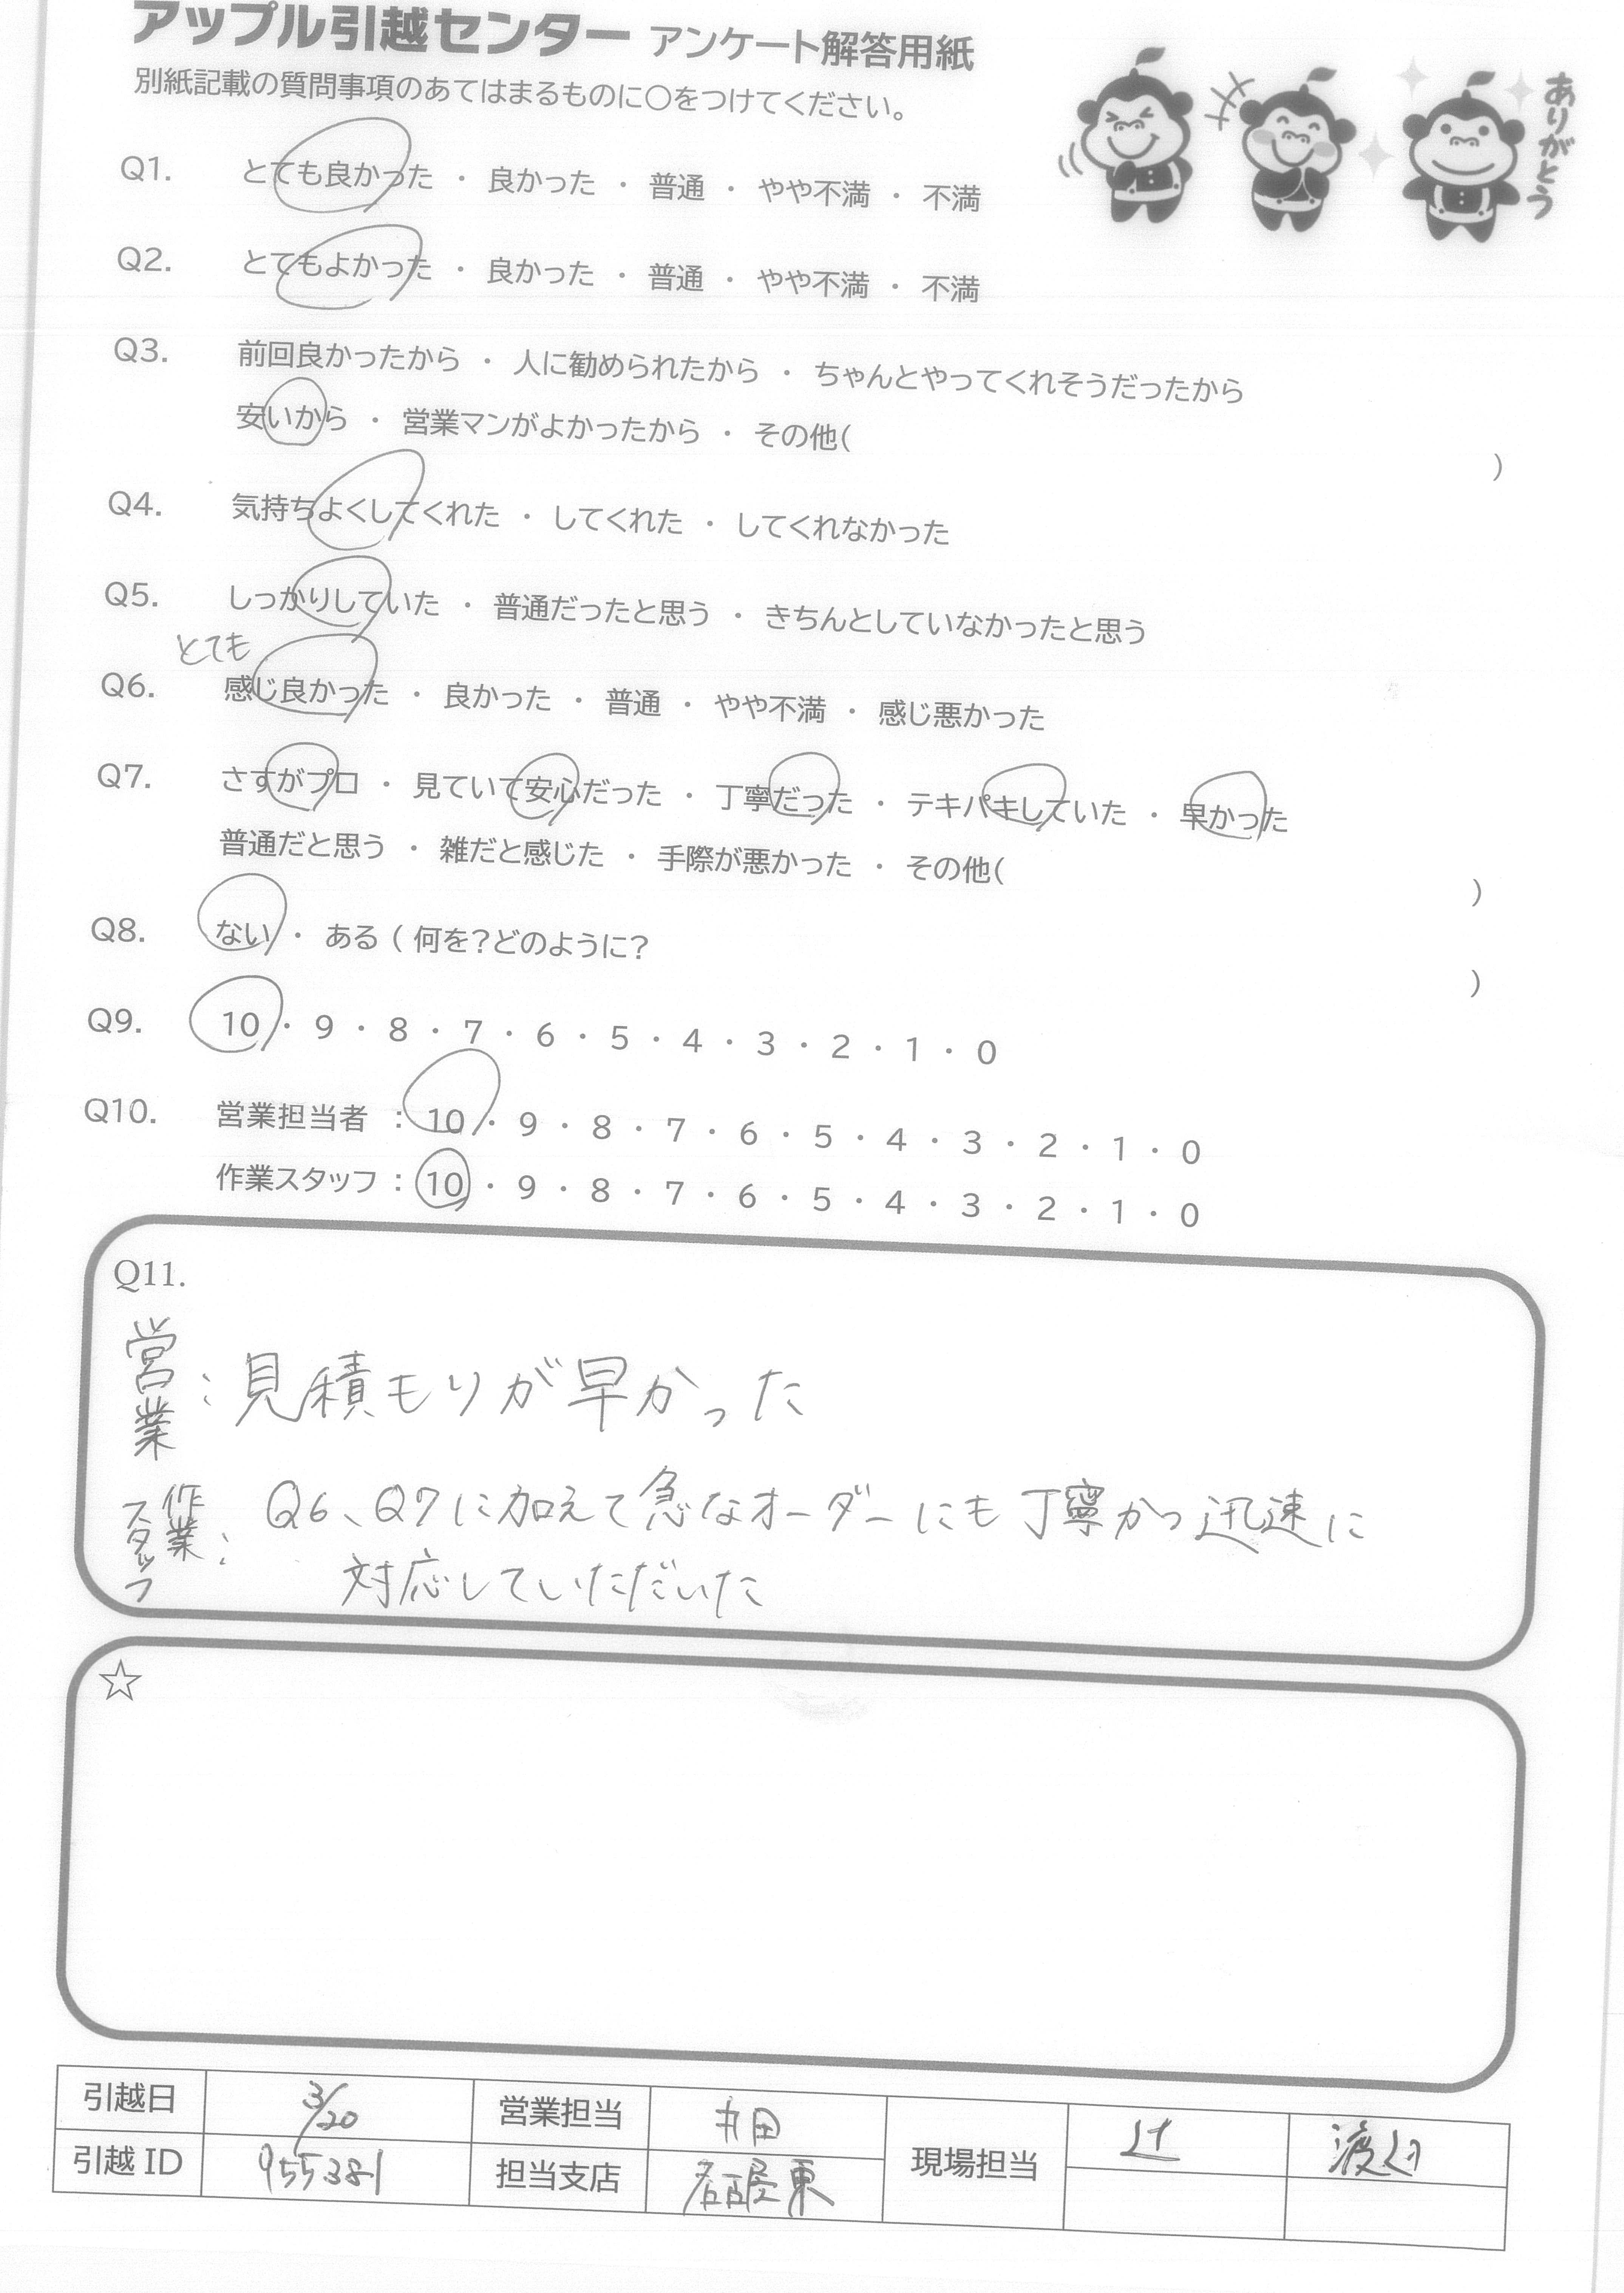 アップル引越センター アンケート解答用紙
別紙記載の質問事項のあてはまるものに○をつけてください。
ありがとう
Q1. とても良かった ・ 良かった ・ 普通 ・ やや不満 ・ 不満
Q2. とてもよかった ・ 良かった ・ 普通 ・ やや不満 ・ 不満
Q3. 前回良かったから ・ 人に勧められたから ・ ちゃんとやってくれそうだったから
安いから ・ 営業マンがよかったから ・ その他( )
Q4. 気持ちよくしてくれた ・ してくれた ・ してくれなかった
Q5. しっかりしていた ・ 普通だったと思う ・ きちんとしていなかったと思う
とても
Q6. 感じ良かった ・ 良かった ・ 普通 ・ やや不満 ・ 感じ悪かった
Q7. さすがプロ ・ 見ていて安心だった ・ 丁寧だった ・ テキパキしていた ・ 早かった
普通だと思う ・ 雑だと感じた ・ 手際が悪かった ・ その他( )
Q8. ない ・ ある ( 何を?どのように? )
Q9. 10 ・ 9 ・ 8 ・ 7 ・ 6 ・ 5 ・ 4 ・ 3 ・ 2 ・ 1 ・ 0
Q10. 営業担当者 : 10 ・ 9 ・ 8 ・ 7 ・ 6 ・ 5 ・ 4 ・ 3 ・ 2 ・ 1 ・ 0
作業スタッフ : 10 ・ 9 ・ 8 ・ 7 ・ 6 ・ 5 ・ 4 ・ 3 ・ 2 ・ 1 ・ 0
Q11.
営業:見積もりが早かった
作業スタッフ: Q6、Q7に加えて急なオーダーにも丁寧かつ迅速に
対応していただいた
☆
引越日 3/20 営業担当 井田 現場担当 辻 渡辺
引越ID 955381 担当支店 名古屋東